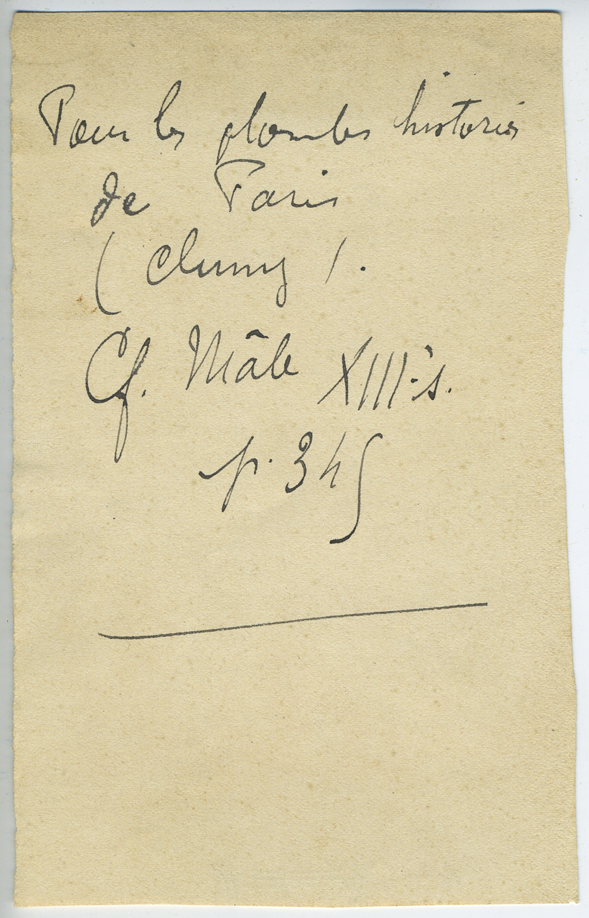 Pour les plombs historiés
de Paris
(Cluny).
Cf. Mâle XIIIe s.
p. 345